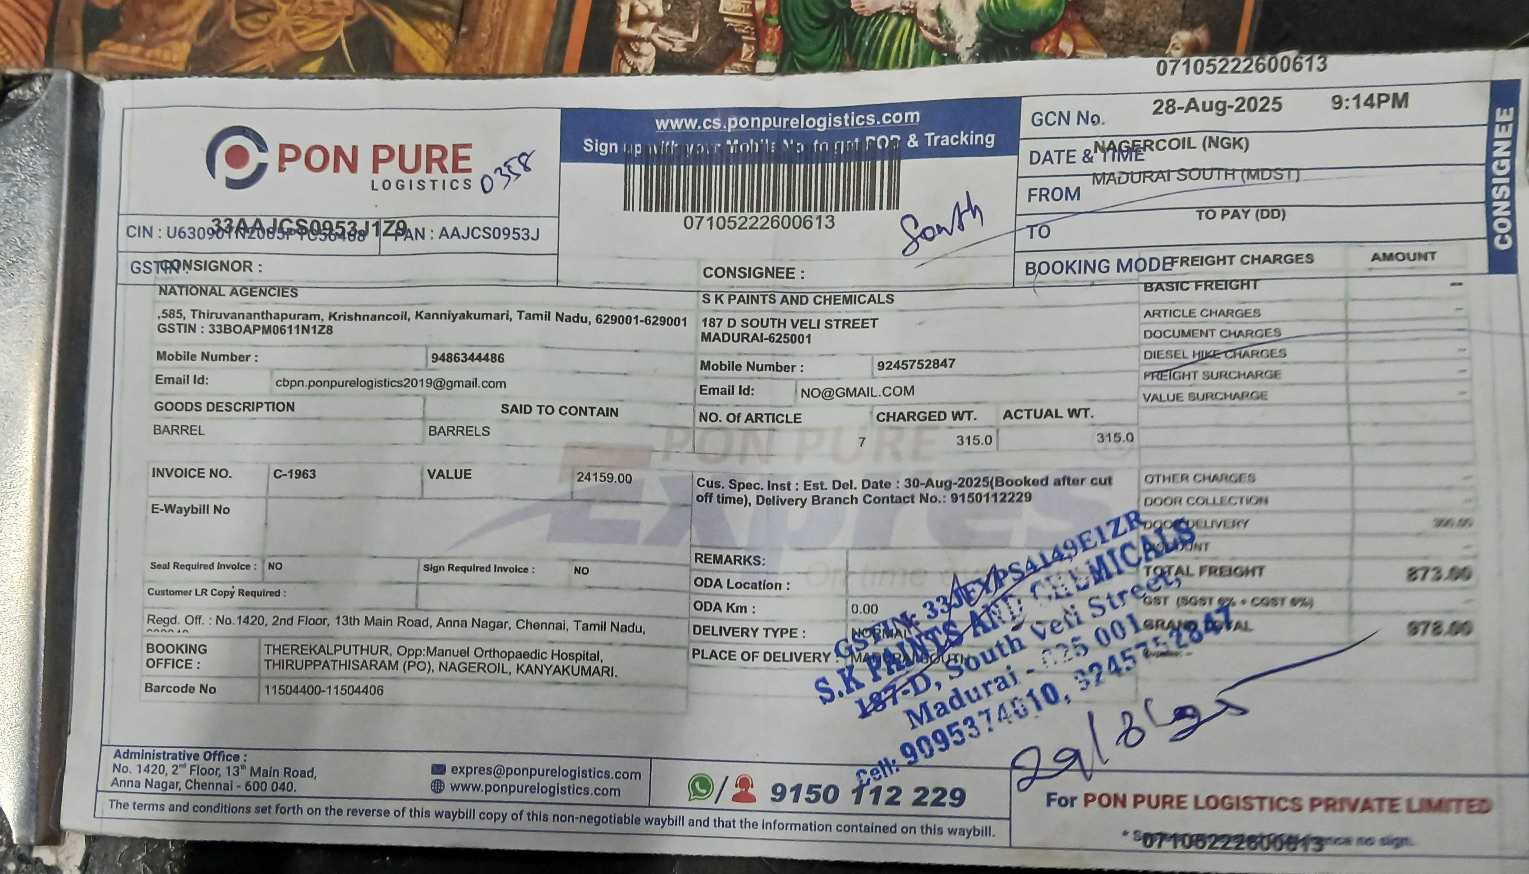 07105222600613
PON PURE
LOGISTICS
0358
www.cs.ponpurelogistics.com
Sign up with your Mobile No. to get POD & Tracking
07105222600613
South
GCN No.
28-Aug-2025 9:14PM
DATE & TIME
NAGERCOIL (NGK)
FROM
MADURAI SOUTH (MDST)
TO
TO PAY (DD)
BOOKING MODE
CONSIGNEE
CIN :
33AAJCS0953J1Z9
PAN : AAJCS0953J
GSTIN :
CONSIGNOR :
NATIONAL AGENCIES
,585, Thiruvananthapuram, Krishnancoil, Kanniyakumari, Tamil Nadu, 629001-629001
GSTIN : 33BOAPM0611N1Z8
Mobile Number : 9486344486
Email Id: cbpn.ponpurelogistics2019@gmail.com
GOODS DESCRIPTION SAID TO CONTAIN
BARREL BARRELS
INVOICE NO. C-1963 VALUE 24159.00
E-Waybill No
Seal Required Invoice : NO Sign Required Invoice : NO
Customer LR Copy Required :
Regd. Off. : No.1420, 2nd Floor, 13th Main Road, Anna Nagar, Chennai, Tamil Nadu,
BOOKING OFFICE : THEREKALPUTHUR, Opp:Manuel Orthopaedic Hospital,
THIRUPPATHISARAM (PO), NAGEROIL, KANYAKUMARI.
Barcode No 11504400-11504406
CONSIGNEE :
S K PAINTS AND CHEMICALS
187 D SOUTH VELI STREET
MADURAI-625001
Mobile Number : 9245752847
Email Id: NO@GMAIL.COM
NO. Of ARTICLE CHARGED WT. ACTUAL WT.
7 315.0 315.0
PON PURE
Expres
Cus. Spec. Inst : Est. Del. Date : 30-Aug-2025(Booked after cut
off time), Delivery Branch Contact No.: 9150112229
REMARKS:
ODA Location :
ODA Km : 0.00
DELIVERY TYPE : NORMAL
PLACE OF DELIVERY :
FREIGHT CHARGES AMOUNT
BASIC FREIGHT
ARTICLE CHARGES
DOCUMENT CHARGES
DIESEL HIKE CHARGES
FREIGHT SURCHARGE
VALUE SURCHARGE
OTHER CHARGES
DOOR COLLECTION
DOOR DELIVERY 300.00
TOTAL FREIGHT 873.00
GST (SGST 6% + CGST 6%)
GRAND TOTAL 978.00
S.K PAINTS AND CHEMICALS
187-D, South Veli Street,
Madurai - 625 001.
29/8/25
Administrative Office :
No. 1420, 2nd Floor, 13th Main Road,
Anna Nagar, Chennai - 600 040.
expres@ponpurelogistics.com
www.ponpurelogistics.com
9150 112 229
The terms and conditions set forth on the reverse of this waybill copy of this non-negotiable waybill and that the information contained on this waybill.
For PON PURE LOGISTICS PRIVATE LIMITED
07105222600613